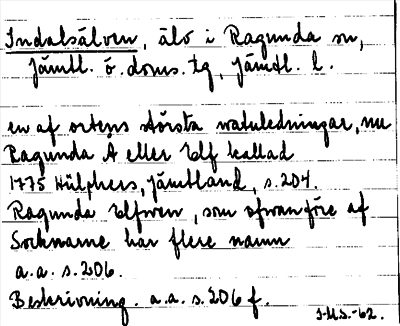 Indalsälven, älv i Ragunda sn,
Jämtl. ö. doms. tg, Jämtl. l.
en af ortens största watuledningar, nu
Ragunda Å eller Elf kallad
1775 Hülphers, Jämtland, s. 204.
Ragunda Elfwen, som ofwanföre af
Socknarne har flere namn
a.a. s. 206.
Beskrivning. a.a. s. 206 f.
J.U.S.-62.